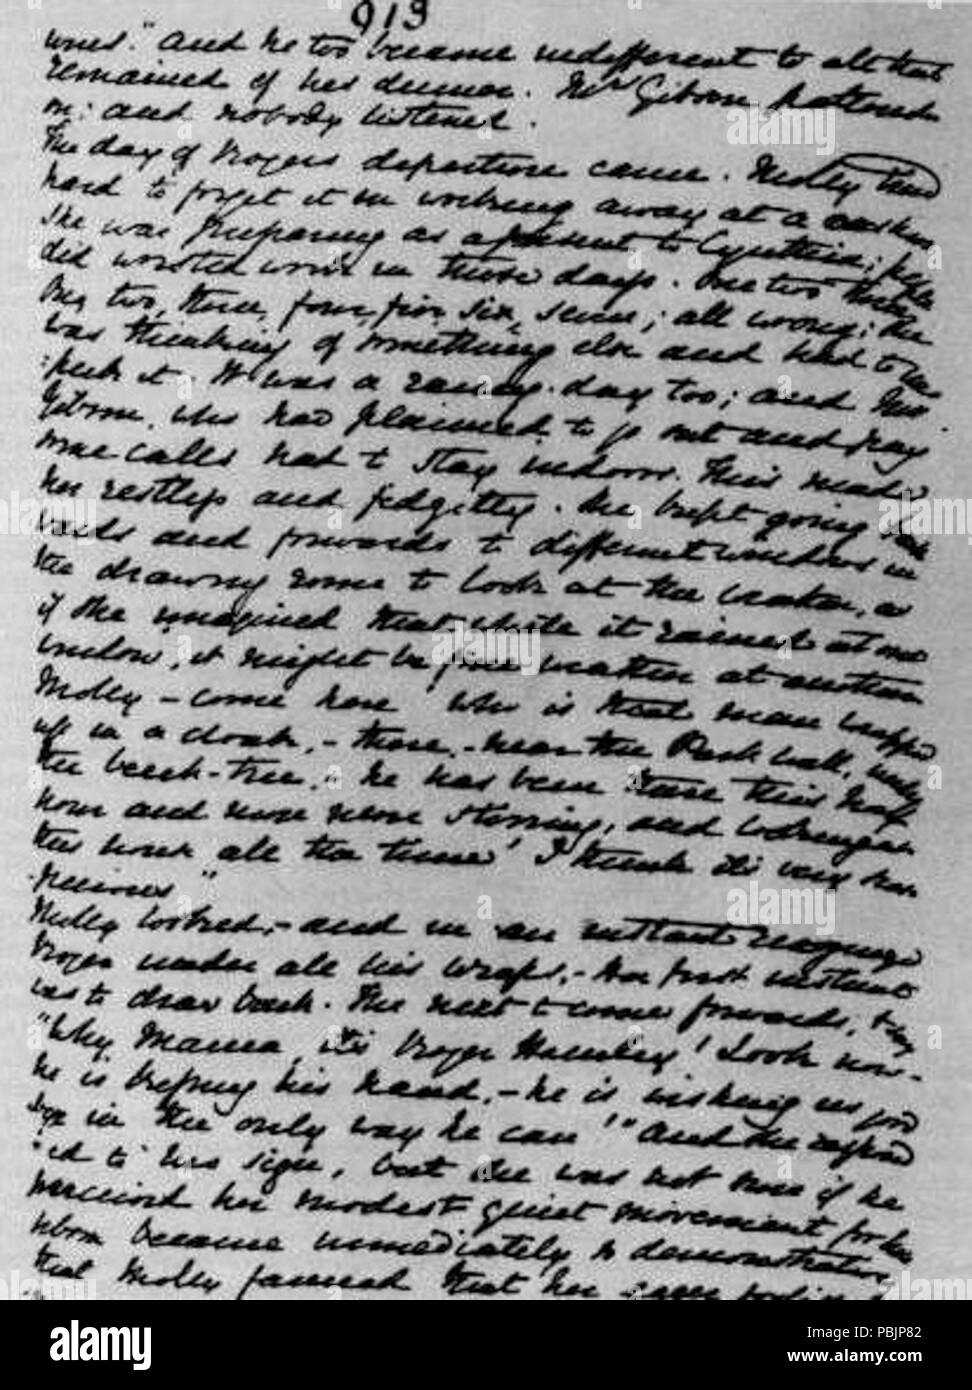 913
wires." And he too became indifferent to all that
remained of his dinner. Mrs Gibson pattered
on: and nobody listened.
The day of Roger's departure came. Molly tried
hard to forget it in working away at a cushion
she was preparing as a present to Cynthia; people
did worsted work in those days. One, two, three
One, two, three, four, five, six, seven; all wrong; she
was thinking of something else and had to un
:pick it. It was a rainy day too; and Mrs
Gibson, who had planned to go out and pay
some calls had to stay indoors. This made
her restless and fidgetty. She kept going back
wards and forwards to different windows in
the drawing room to look at the weather, as
if she imagined that while it rained at one
window, it might be fine weather at another.
Molly – come here who is that man wrapped
up in a cloak, – there, – near the Park wall, under
the beech-tree." he has been there this half
hour and more never stirring, and looking at
this house all the time! I think it's very sus
:picious"
Molly looked, – and in an instant recognised
Roger under all his wraps, – her first instinct
was to draw back. The next to come forwards,
"Why, Mamma, it's Roger Hamley! Look now –
he is kissing his hand, – he is wishing us good
bye in the only way he can!" And she respond
:ed to his sign, but she was not sure if he
perceived her modest quiet movement, for Mrs
Gibson became immediately so demonstrative
that Molly fancied that her eager
alamy
Image ID: PBJP82
www.alamy.com